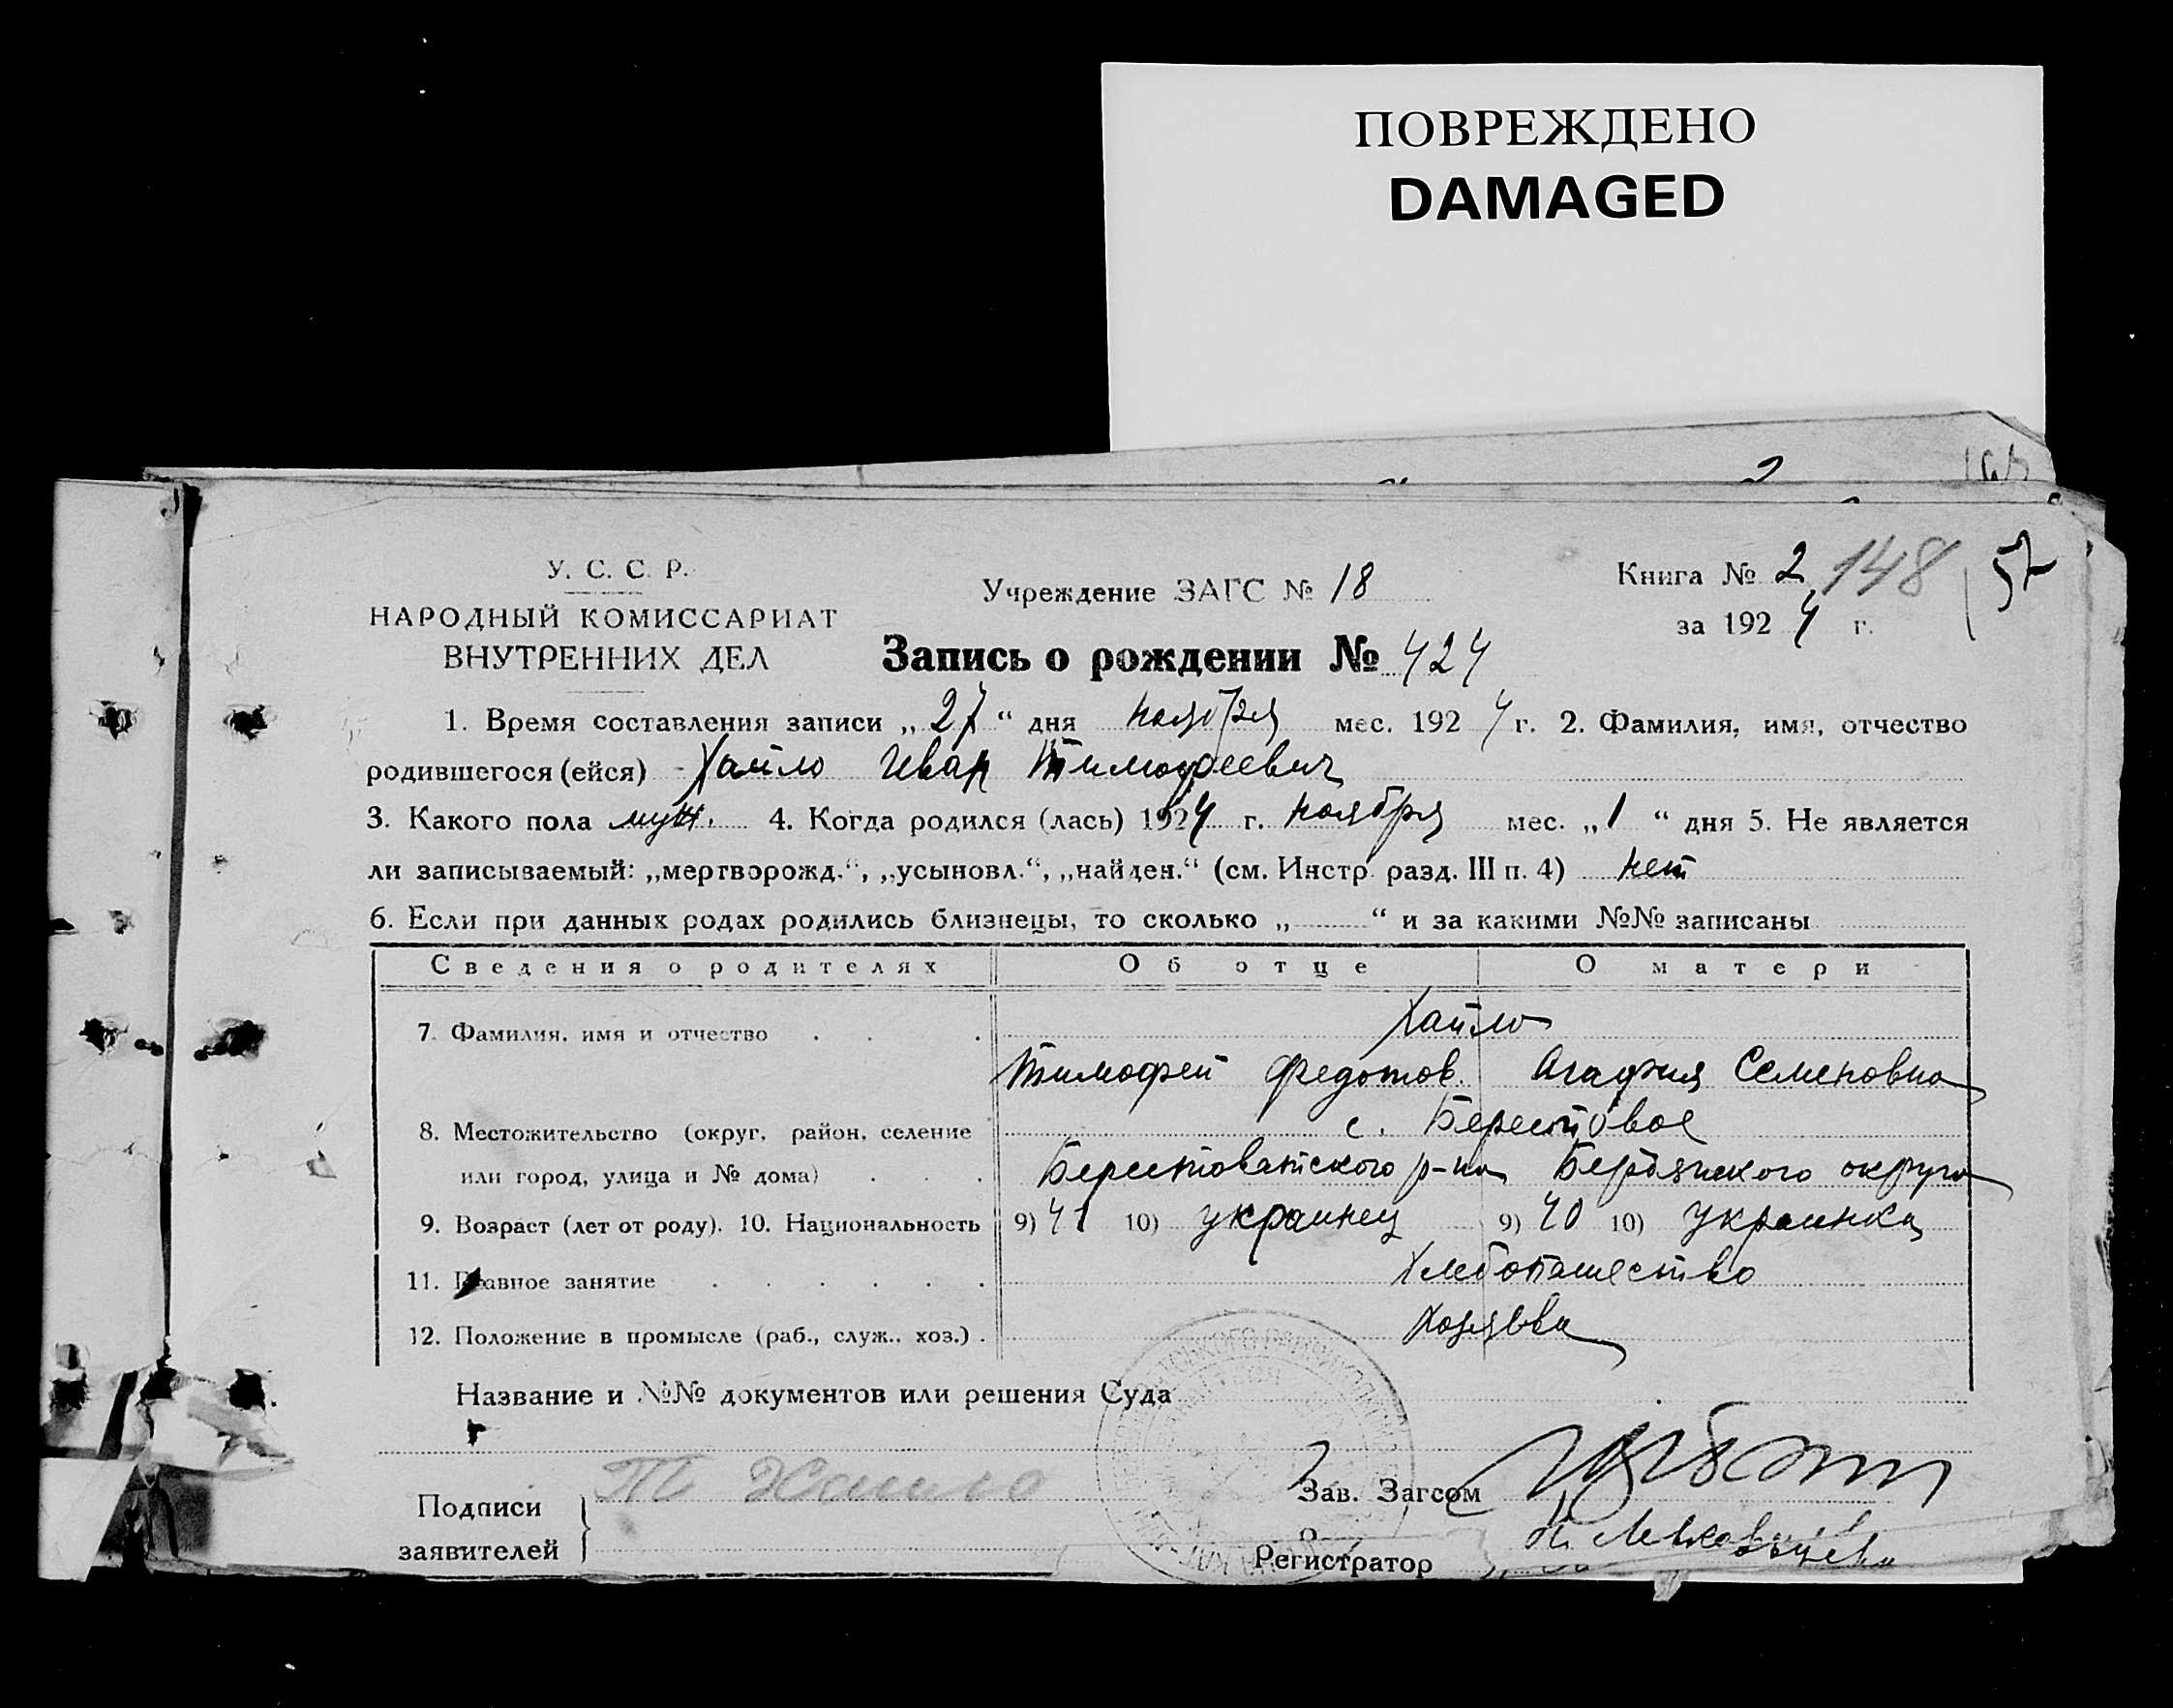 ПОВРЕЖДЕНО
DAMAGED
У. С. С. Р.
НАРОДНЫЙ КОМИССАРИАТ
ВНУТРЕННИХ ДЕЛ
Учреждение ЗАГС № 18
Книга № 2 148 57
за 1924 г.
Запись о рождении № 424
1. Время составления записи „27“ дня ноября мес. 1924 г. 2. Фамилия, имя, отчество
родившегося (ейся) Хайло Иван Тимофеевич
3. Какого пола муж. 4. Когда родился (лась) 1924 г. ноября мес. „1“ дня 5. Не является
ли записываемый: „мертворожд.“, „усыновл.“, „найден.“ (см. Инстр. разд. III п. 4) нет
6. Если при данных родах родились близнецы, то сколько „ “ и за какими №№ записаны
Сведения о родителях Об отце О матери
7. Фамилия, имя и отчество Хайло
Тимофей Федотов. Агафия Семеновна
8. Местожительство (округ, район, селение с. Берестовое
или город, улица и № дома) Берестоватского р-на Бердянского округа
9. Возраст (лет от роду). 10. Национальность 9) 41 10) украинец 9) 40 10) украинка
11. Главное занятие Хлебопашество
12. Положение в промысле (раб., служ., хоз.) Хозяева
Название и №№ документов или решения Суда
Подписи
заявителей
Т Хайло
Зав. Загсом
Регистратор